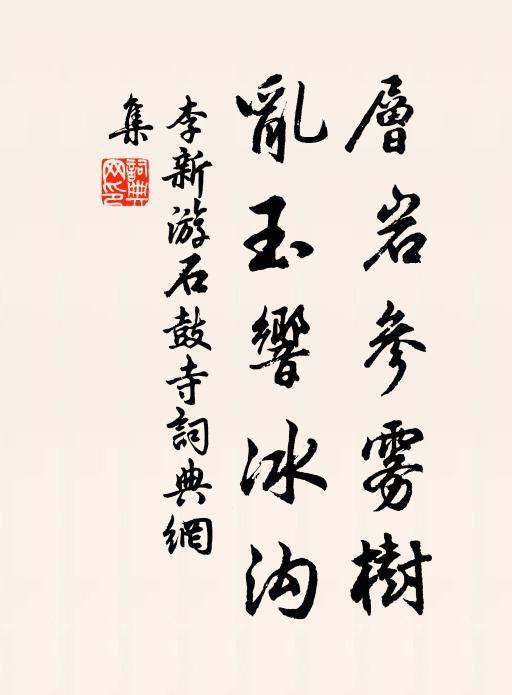 層岩參雾樹
亂玉響冰沟
李新游石鼓寺詞典網
集
詞典網印